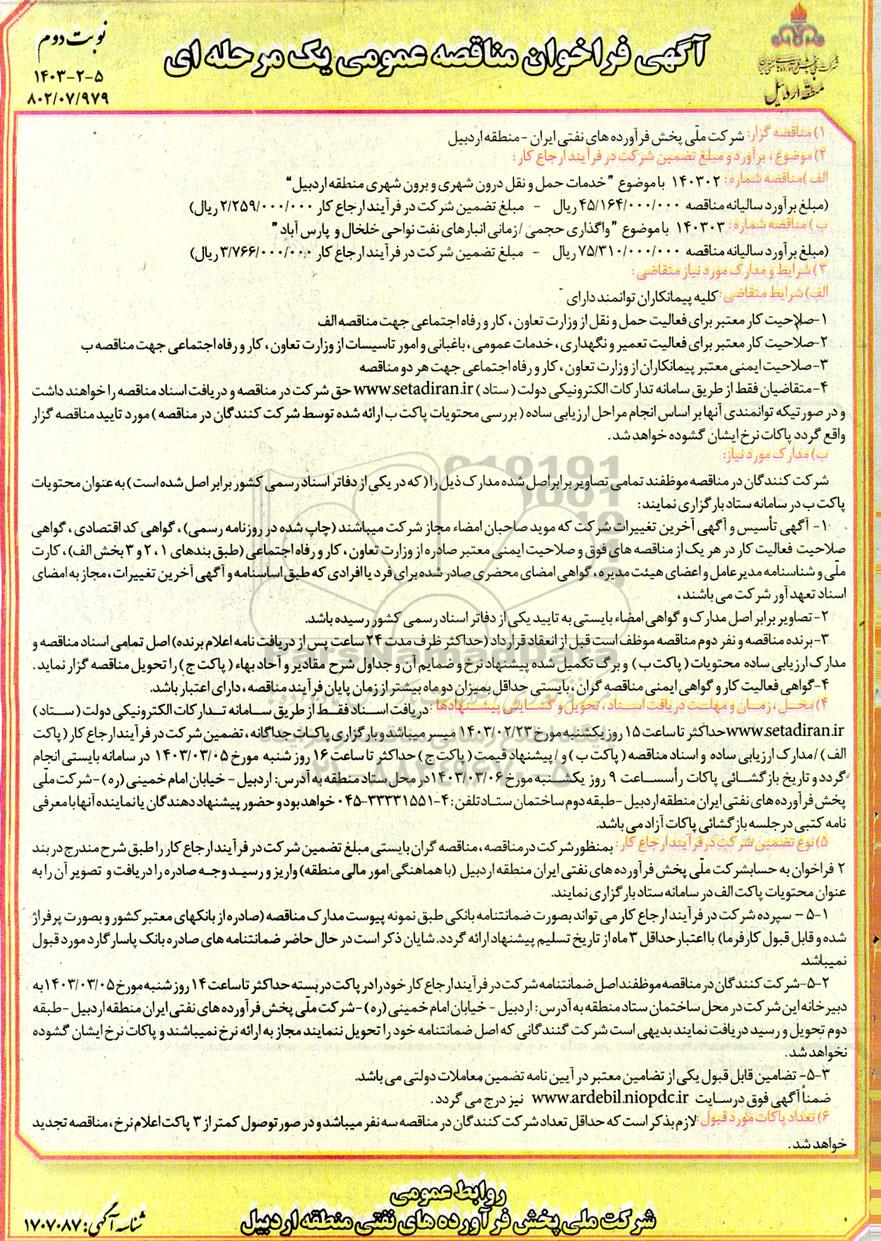 آگهی فراخوان مناقصه عمومی یک مرحله ای
نوبت دوم
۱۴۰۳-۲-۵
۸۰۲/۰۷/۹۷۹
منطقه اردبیل
۱) مناقصه گزار: شرکت ملّی پخش فرآورده های نفتی ایران - منطقه اردبیل
۲) موضوع، برآورد و مبلغ تضمین شرکت در فرآیند ارجاع کار:
الف) مناقصه شماره: ۱۴۰۳۰۲ با موضوع "خدمات حمل و نقل درون شهری و برون شهری منطقه اردبیل"
(مبلغ برآورد سالیانه مناقصه ۴۵/۱۶۴/۰۰۰/۰۰۰ ریال - مبلغ تضمین شرکت در فرآیند ارجاع کار ۲/۲۵۹/۰۰۰/۰۰۰ ریال)
ب) مناقصه شماره: ۱۴۰۳۰۳ با موضوع "واگذاری حجمی/زمانی انبارهای نفت نواحی خلخال و پارس آباد"
(مبلغ برآورد سالیانه مناقصه ۷۵/۳۱۰/۰۰۰/۰۰۰ ریال - مبلغ تضمین شرکت در فرآیند ارجاع کار ۳/۷۶۶/۰۰۰/۰۰۰ ریال)
۳) شرایط و مدارک مورد نیاز متقاضی:
الف) شرایط متقاضی: کلیه پیمانکاران توانمند دارای
۱-صلاحیت کار معتبر برای فعالیت حمل و نقل از وزارت تعاون، کار و رفاه اجتماعی جهت مناقصه الف
۲-صلاحیت کار معتبر برای فعالیت تعمیر و نگهداری، خدمات عمومی، باغبانی و امور تاسیسات از وزارت تعاون، کار و رفاه اجتماعی جهت مناقصه ب
۳-صلاحیت ایمنی معتبر پیمانکاران از وزارت تعاون، کار و رفاه اجتماعی جهت هر دو مناقصه
۴-متقاضیان فقط از طریق سامانه تدارکات الکترونیکی دولت (ستاد) www.setadiran.ir حق شرکت در مناقصه و دریافت اسناد مناقصه را خواهند داشت
و در صورتیکه توانمندی آنها بر اساس انجام مراحل ارزیابی ساده (بررسی محتویات پاکت ب ارائه شده توسط شرکت کنندگان در مناقصه) مورد تایید مناقصه گزار
واقع گردد پاکات نرخ ایشان گشوده خواهد شد.
ب) مدارک مورد نیاز:
شرکت کنندگان در مناقصه موظفند تمامی تصاویر برابر اصل شده مدارک ذیل را (که در یکی از دفاتر اسناد رسمی کشور برابر اصل شده است) به عنوان محتویات
پاکت ب در سامانه ستاد بارگزاری نمایند:
۱- آگهی تأسیس و آگهی آخرین تغییرات شرکت که موید صاحبان امضاء مجاز شرکت میباشند (چاپ شده در روزنامه رسمی)، گواهی کد اقتصادی، گواهی
صلاحیت فعالیت کار در هر یک از مناقصه های فوق و صلاحیت ایمنی معتبر صادره از وزارت تعاون، کار و رفاه اجتماعی (طبق بندهای ۱، ۲ و ۳ بخش الف)، کارت
ملّی و شناسنامه مدیرعامل و اعضای هیئت مدیره، گواهی امضای محضری صادر شده برای فرد یا افرادی که طبق اساسنامه و آگهی آخرین تغییرات، مجاز به امضای
اسناد تعهدآور شرکت می باشند،
۲-تصاویر برابر اصل مدارک و گواهی امضاء بایستی به تایید یکی از دفاتر اسناد رسمی کشور رسیده باشد.
۳-برنده مناقصه و نفر دوم مناقصه موظف است قبل از انعقاد قرارداد (حداکثر ظرف مدت ۲۴ ساعت پس از دریافت نامه اعلام برنده) اصل تمامی اسناد مناقصه و
مدارک ارزیابی ساده محتویات (پاکت ب) و برگ تکمیل شده پیشنهاد نرخ و ضمایم آن و جداول شرح مقادیر و آحاد بهاء (پاکت ج) را تحویل مناقصه گزار نماید.
۴-گواهی فعالیت کار و گواهی ایمنی مناقصه گران، بایستی حداقل بمیزان دو ماه بیشتر از زمان پایان فرآیند مناقصه، دارای اعتبار باشد.
۴) محل، زمان و مهلت دریافت اسناد، تحویل و گشایش پیشنهادها: دریافت اسناد فقط از طریق سامانه تدارکات الکترونیکی دولت (ستاد)
www.setadiran.ir حداکثر تا ساعت ۱۵ روز یکشنبه مورخ ۱۴۰۳/۰۲/۲۳ میسر میباشد و بارگزاری پاکات جداگانه، تضمین شرکت در فرآیند ارجاع کار (پاکت
الف) / مدارک ارزیابی ساده و اسناد مناقصه (پاکت ب) و / پیشنهاد قیمت (پاکت ج) حداکثر تا ساعت ۱۶ روز شنبه مورخ ۱۴۰۳/۰۳/۰۵ در سامانه بایستی انجام
گردد و تاریخ بازگشائی پاکات رأس ساعت ۹ روز یکشنبه مورخ ۱۴۰۳/۰۳/۰۶ در محل ستاد منطقه به آدرس: اردبیل - خیابان امام خمینی (ره) - شرکت ملّی
پخش فرآورده های نفتی ایران منطقه اردبیل -طبقه دوم ساختمان ستاد تلفن: ۴-۳۳۳۳۱۵۵۱-۰۴۵ خواهد بود و حضور پیشنهاد دهندگان یا نماینده آنها با معرفی
نامه کتبی در جلسه بازگشائی پاکات آزاد می باشد.
۵) نوع تضمین شرکت در فرآیند ارجاع کار: بمنظور شرکت در مناقصه، مناقصه گران بایستی مبلغ تضمین شرکت در فرآیند ارجاع کار را طبق شرح مندرج در بند
۲ فراخوان به حساب شرکت ملّی پخش فرآورده های نفتی ایران منطقه اردبیل (با هماهنگی امور مالی منطقه) واریز و رسید وجه صادره را دریافت و تصویر آن را به
عنوان محتویات پاکت الف در سامانه ستاد بارگزاری نمایند.
۵-۱ - سپرده شرکت در فرآیند ارجاع کار می تواند بصورت ضمانتنامه بانکی طبق نمونه پیوست مدارک مناقصه (صادره از بانکهای معتبر کشور و بصورت پرفراژ
شده و قابل قبول کارفرما) با اعتبار حداقل ۳ ماه از تاریخ تسلیم پیشنهاد ارائه گردد. شایان ذکر است در حال حاضر ضمانتنامه های صادره بانک پاسارگاد مورد قبول
نمیباشد.
۵-۲-شرکت کنندگان در مناقصه موظفند اصل ضمانتنامه شرکت در فرآیند ارجاع کار خود را در پاکت در بسته حداکثر تا ساعت ۱۴ روز شنبه مورخ ۱۴۰۳/۰۳/۰۵ به
دبیرخانه این شرکت در محل ساختمان ستاد منطقه به آدرس: اردبیل - خیابان امام خمینی (ره) - شرکت ملّی پخش فرآورده های نفتی ایران منطقه اردبیل -طبقه
دوم تحویل و رسید دریافت نمایند بدیهی است شرکت گنندگانی که اصل ضمانتنامه خود را تحویل ننمایند مجاز به ارائه نرخ نمیباشند و پاکات نرخ ایشان گشوده
نخواهد شد.
۵-۳- تضامین قابل قبول یکی از تضامین معتبر در آیین نامه تضمین معاملات دولتی می باشد.
ضمناً آگهی فوق در سایت www.ardebil.niopdc.ir نیز درج می گردد.
۶) تعداد پاکات مورد قبول: لازم بذکر است که حداقل تعداد شرکت کنندگان در مناقصه سه نفر میباشد و در صورت وصول کمتر از ۳ پاکت اعلام نرخ، مناقصه تجدید
خواهد شد.
روابط عمومی
شرکت ملی پخش فرآورده های نفتی منطقه اردبیل
شناسه آگهی: ۱۷۰۷۰۸۷